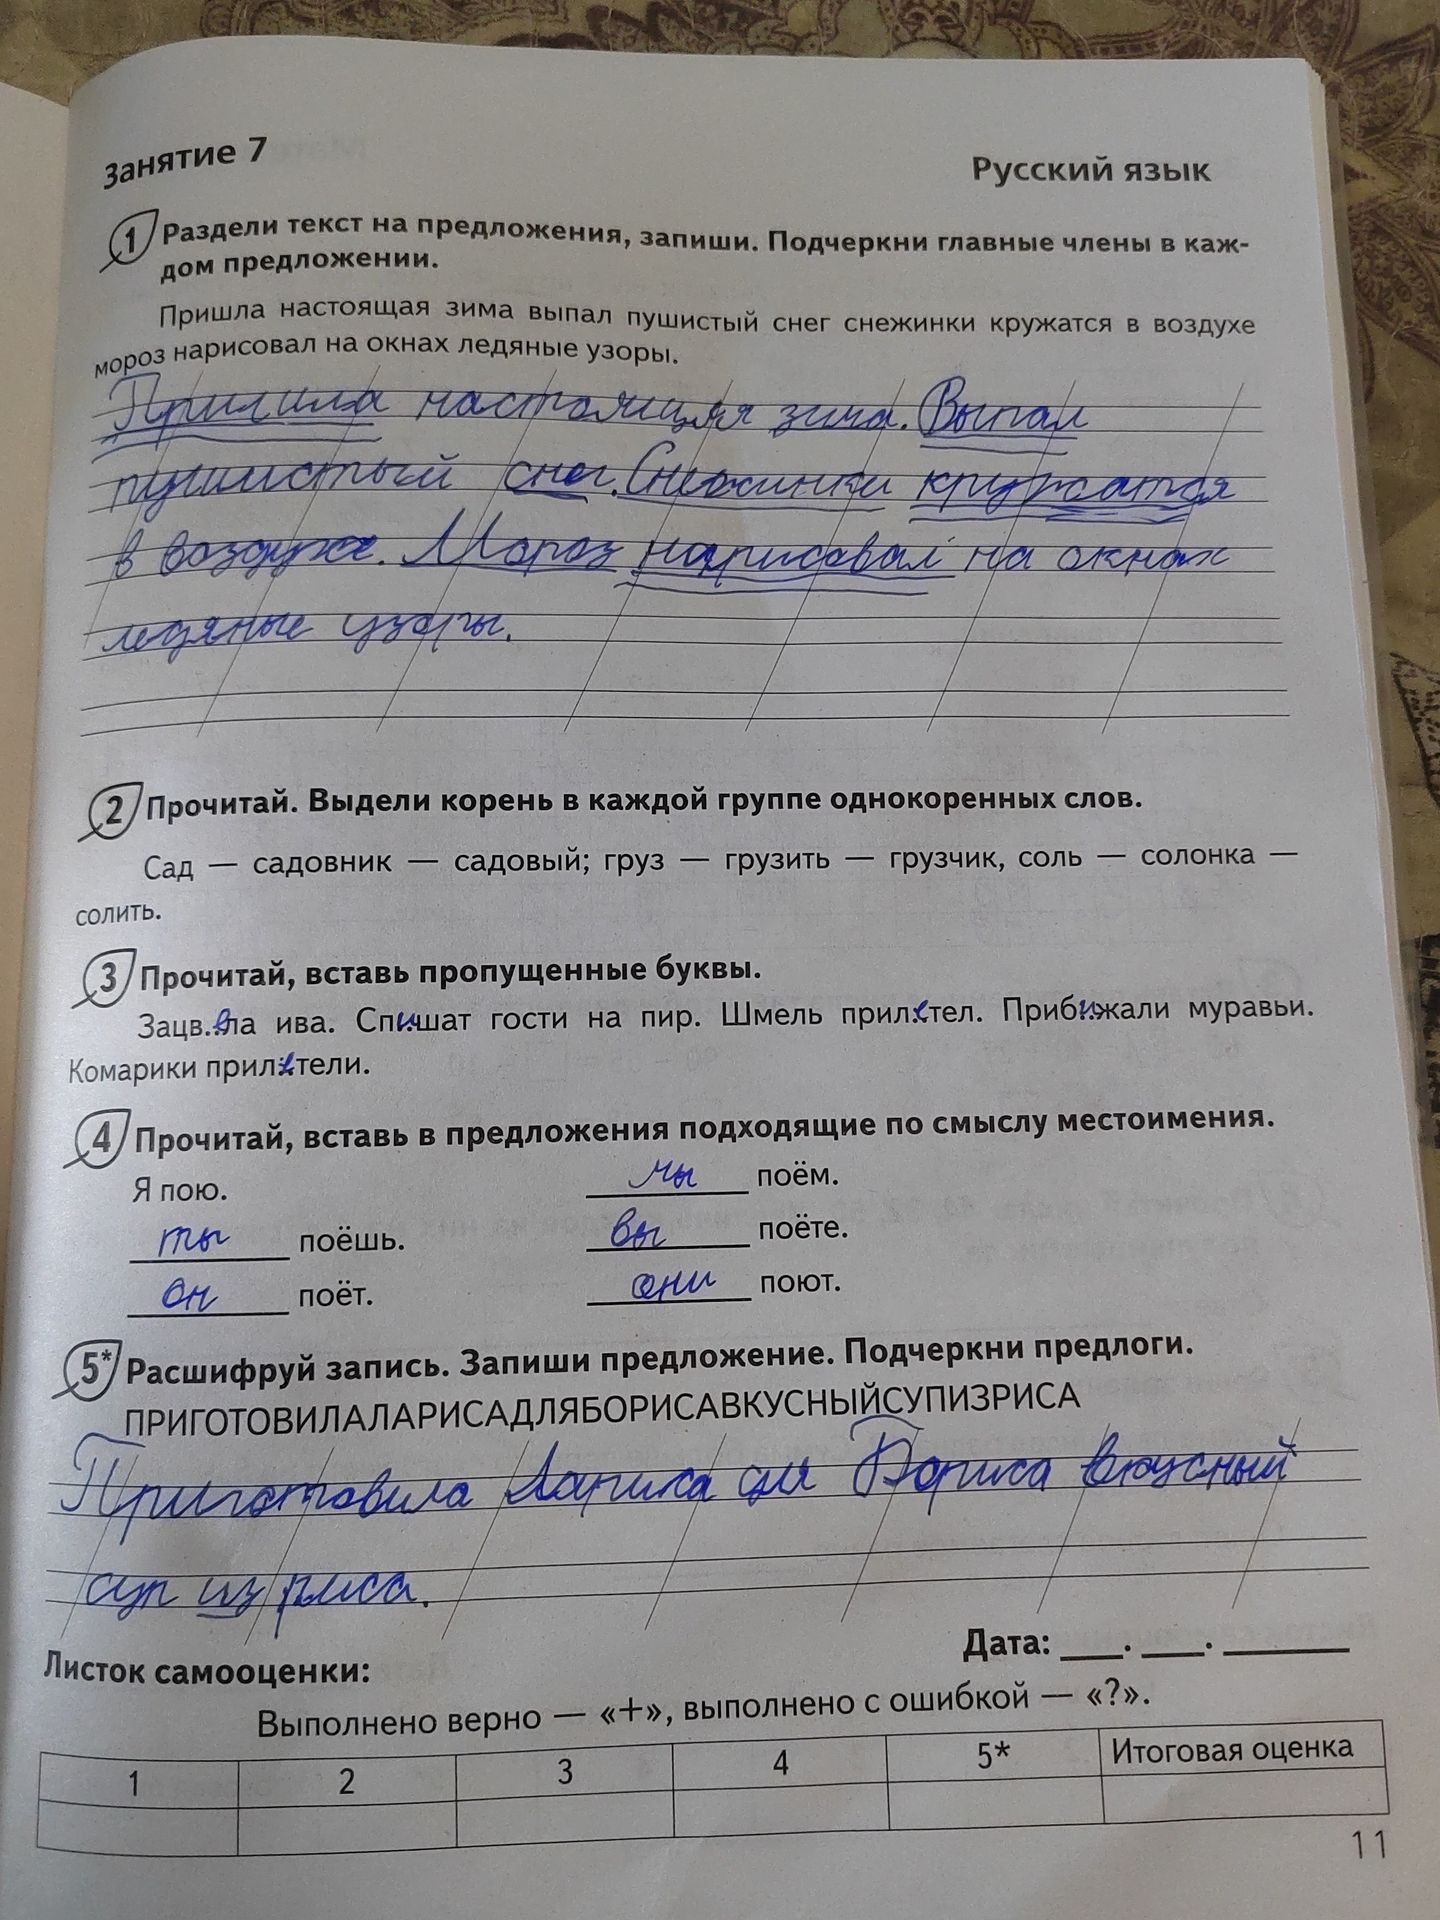 Занятие 7
Русский язык
1 Раздели текст на предложения, запиши. Подчеркни главные члены в каж-
дом предложении.
Пришла настоящая зима выпал пушистый снег снежинки кружатся в воздухе
мороз нарисовал на окнах ледяные узоры.
Пришла настоящая зима. Выпал
пушистый снег. Снежинки кружатся
в воздухе. Мороз нарисовал на окнах
ледяные узоры.
2 Прочитай. Выдели корень в каждой группе однокоренных слов.
Сад — садовник — садовый; груз — грузить — грузчик, соль — солонка —
солить.
3 Прочитай, вставь пропущенные буквы.
Зацвела ива. Спишат гости на пир. Шмель прилетел. Прибижали муравьи.
Комарики прилетели.
4 Прочитай, вставь в предложения подходящие по смыслу местоимения.
Я пою. мы поём.
ты поёшь. вы поёте.
он поёт. они поют.
5* Расшифруй запись. Запиши предложение. Подчеркни предлоги.
ПРИГОТОВИЛАЛАРИСАДЛЯБОРИСАВКУСНЫЙСУПИЗРИСА
Приготовила Лариса для Бориса вкусный
суп из риса.
Дата: ___. ___. ______
Листок самооценки:
Выполнено верно — «+», выполнено с ошибкой — «?».
1 2 3 4 5* Итоговая оценка
11